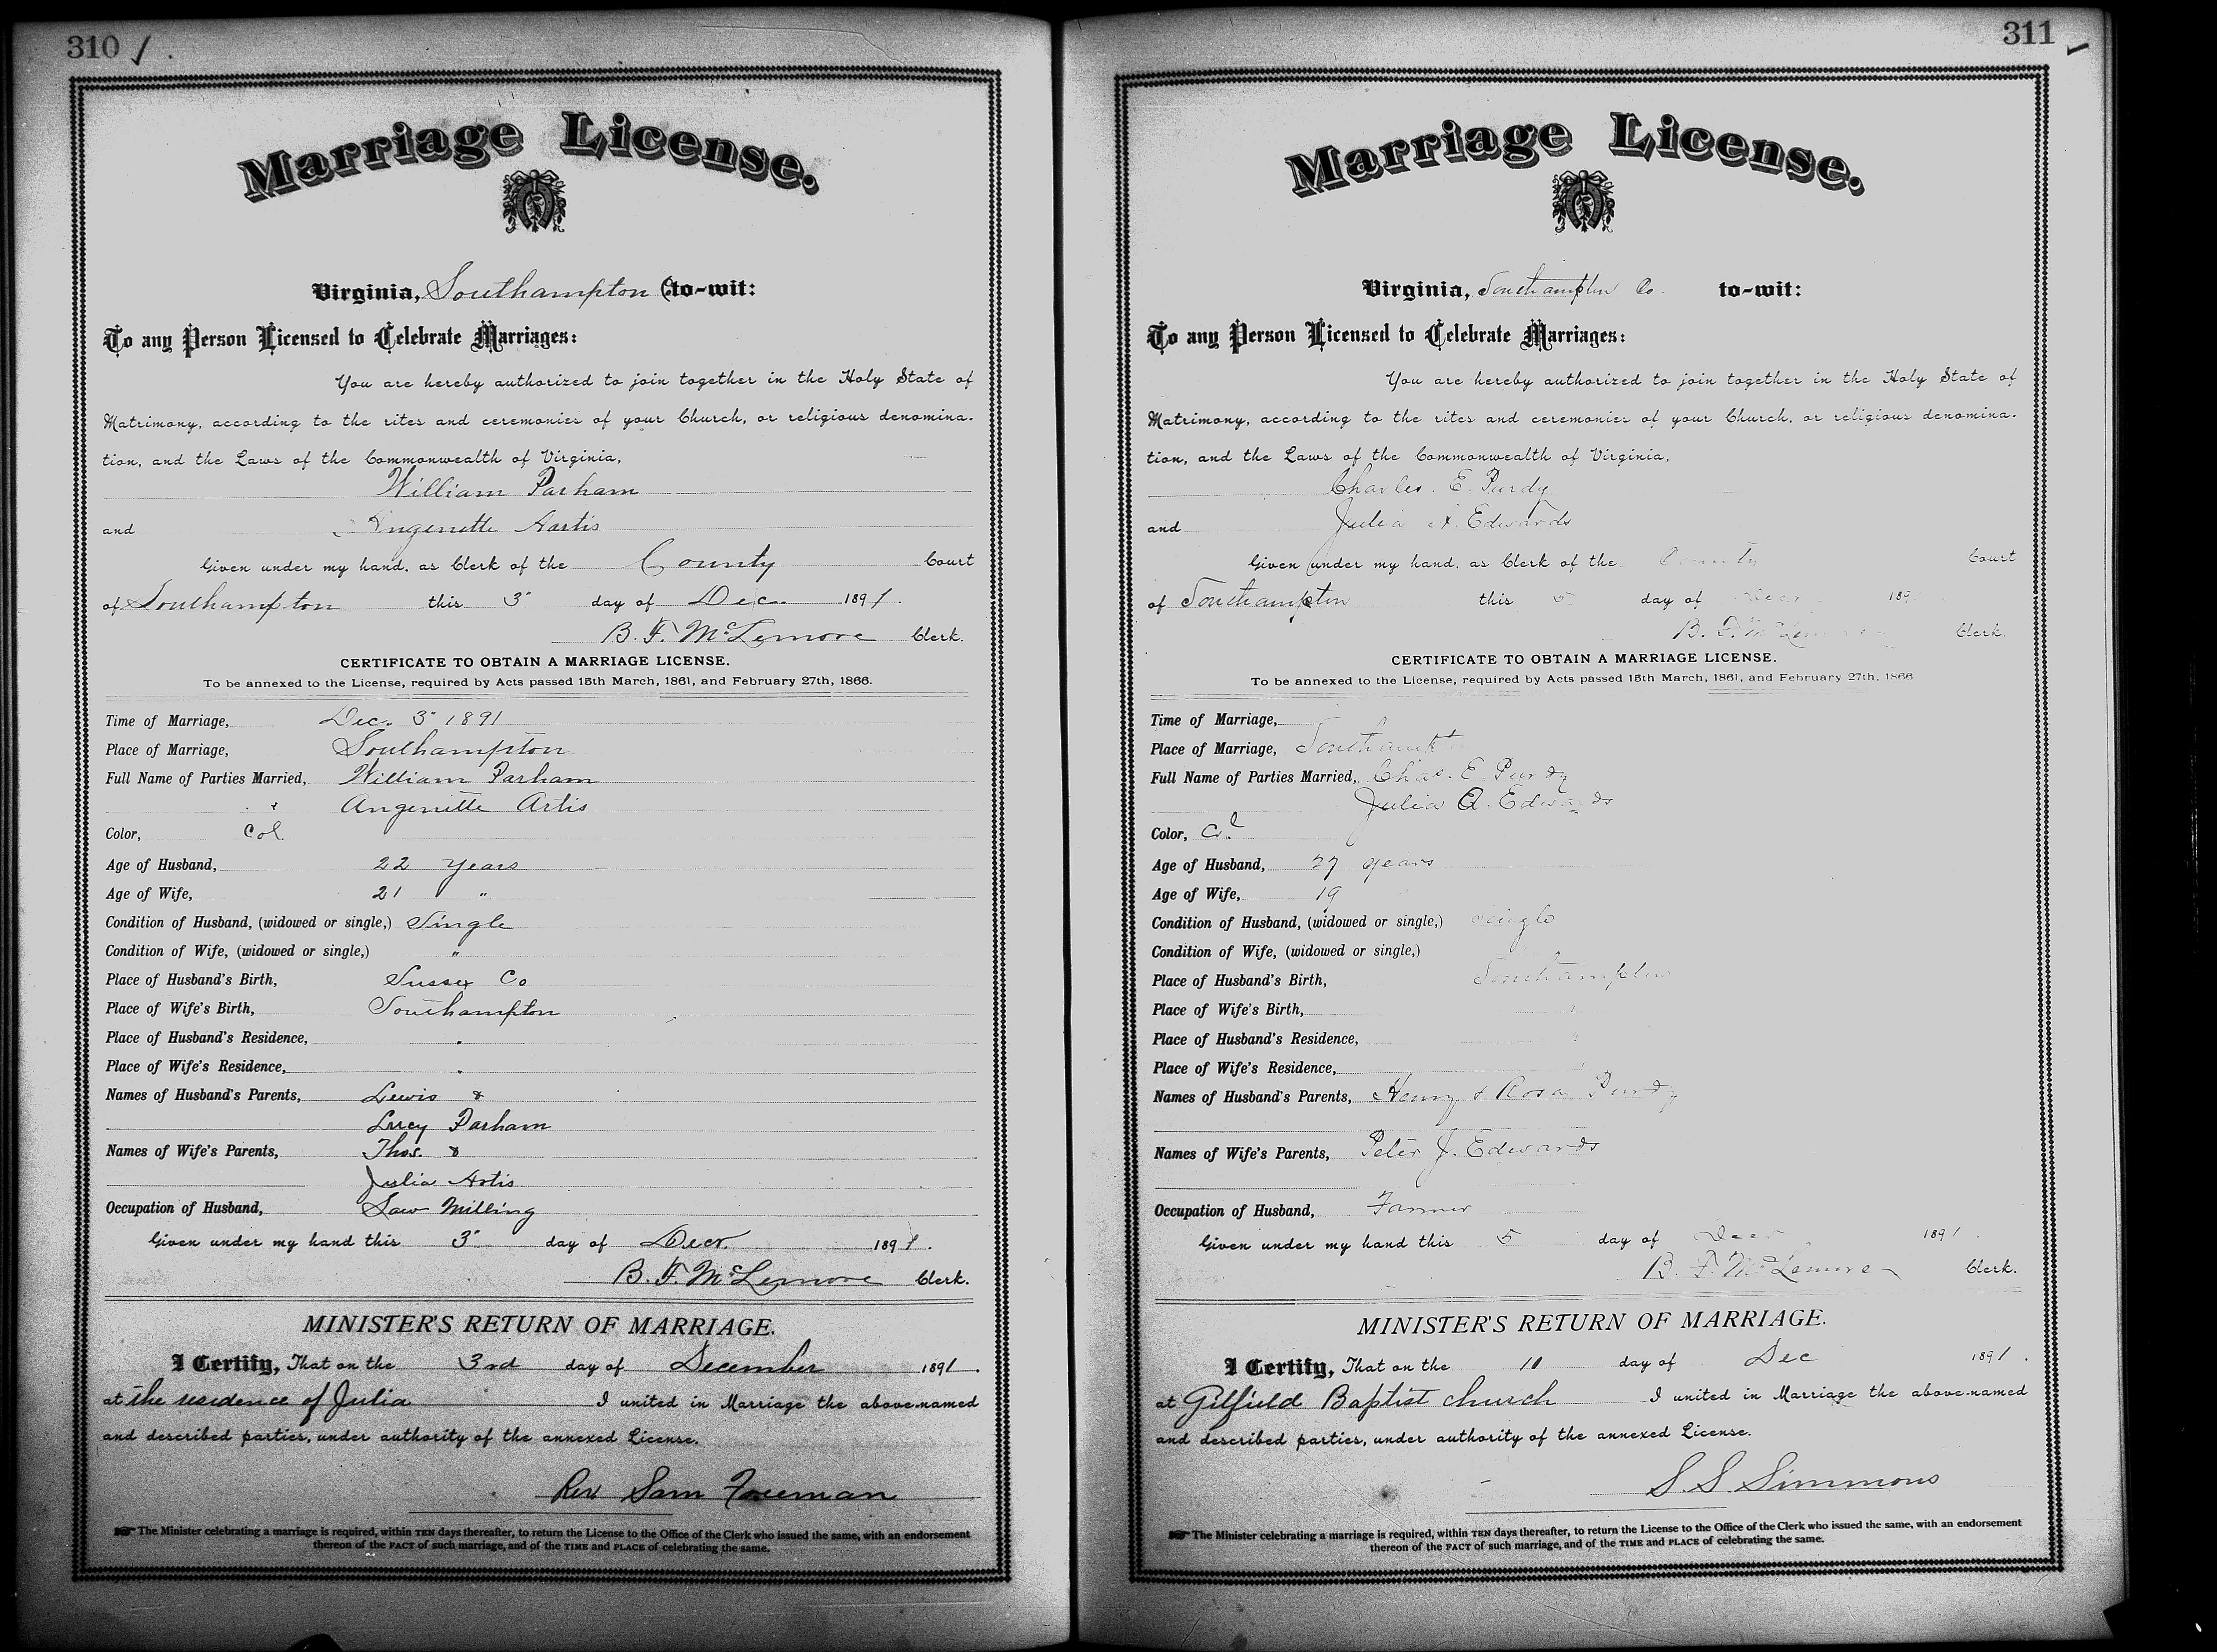 310
Marriage License.
Virginia, Southampton Co to-wit:
To any Person Licensed to Celebrate Marriages:
You are hereby authorized to join together in the Holy State of
Matrimony, according to the rites and ceremonies of your Church, or religious denomina-
tion, and the Laws of the Commonwealth of Virginia,
William Parham
and Angenette Aartis
Given under my hand, as Clerk of the County Court
of Southampton this 3" day of Dec. 1891.
B. F. McLemore Clerk.
CERTIFICATE TO OBTAIN A MARRIAGE LICENSE.
To be annexed to the License, required by Acts passed 15th March, 1861, and February 27th, 1866.
Time of Marriage, Dec. 3" 1891
Place of Marriage, Southampton
Full Name of Parties Married, William Parham
Angenette Artis
Color, Col.
Age of Husband, 22 years
Age of Wife, 21 "
Condition of Husband, (widowed or single,) Single
Condition of Wife, (widowed or single,) "
Place of Husband's Birth, Sussex Co
Place of Wife's Birth, Southampton
Place of Husband's Residence, "
Place of Wife's Residence, "
Names of Husband's Parents, Lewis &
Lucy Parham
Names of Wife's Parents, Thos. &
Julia Artis
Occupation of Husband, Saw Milling
Given under my hand this 3" day of Decr. 1891.
B. F. McLemore Clerk.
MINISTER'S RETURN OF MARRIAGE.
I Certify, That on the 3rd day of December 1891.
at the residence of Julia I united in Marriage the above-named
and described parties, under authority of the annexed License.
Rev Sam Freeman
The Minister celebrating a marriage is required, within TEN days thereafter, to return the License to the Office of the Clerk who issued the same, with an endorsement
thereon of the FACT of such marriage, and of the TIME and PLACE of celebrating the same.
311
Marriage License.
Virginia, Southampton Co. to-wit:
To any Person Licensed to Celebrate Marriages:
You are hereby authorized to join together in the Holy State of
Matrimony, according to the rites and ceremonies of your Church, or religious denomina-
tion, and the Laws of the Commonwealth of Virginia,
Charles. E. Purdy
and Julia A. Edwards
Given under my hand, as Clerk of the County Court
of Southampton this 5 day of Decr 189
B. F. McLemore Clerk.
CERTIFICATE TO OBTAIN A MARRIAGE LICENSE.
To be annexed to the License, required by Acts passed 15th March, 1861, and February 27th, 1866
Time of Marriage,
Place of Marriage, Southampton
Full Name of Parties Married, Chas. E. Purdy
Julia A. Edwards
Color, Col
Age of Husband, 27 years
Age of Wife, 19
Condition of Husband, (widowed or single,) Single
Condition of Wife, (widowed or single,)
Place of Husband's Birth, Southampton
Place of Wife's Birth, "
Place of Husband's Residence, "
Place of Wife's Residence,
Names of Husband's Parents, Henry & Rosa Purdy
Names of Wife's Parents, Peter J. Edwards
Occupation of Husband, Farmer
Given under my hand this 5 day of Decr 1891.
B. F. McLemore Clerk.
MINISTER'S RETURN OF MARRIAGE.
I Certify, That on the 10 day of Dec 1891.
at Gilfield Baptist church I united in Marriage the above-named
and described parties, under authority of the annexed License.
S. S Simmons
The Minister celebrating a marriage is required, within TEN days thereafter, to return the License to the Office of the Clerk who issued the same, with an endorsement
thereon of the FACT of such marriage, and of the TIME and PLACE of celebrating the same.